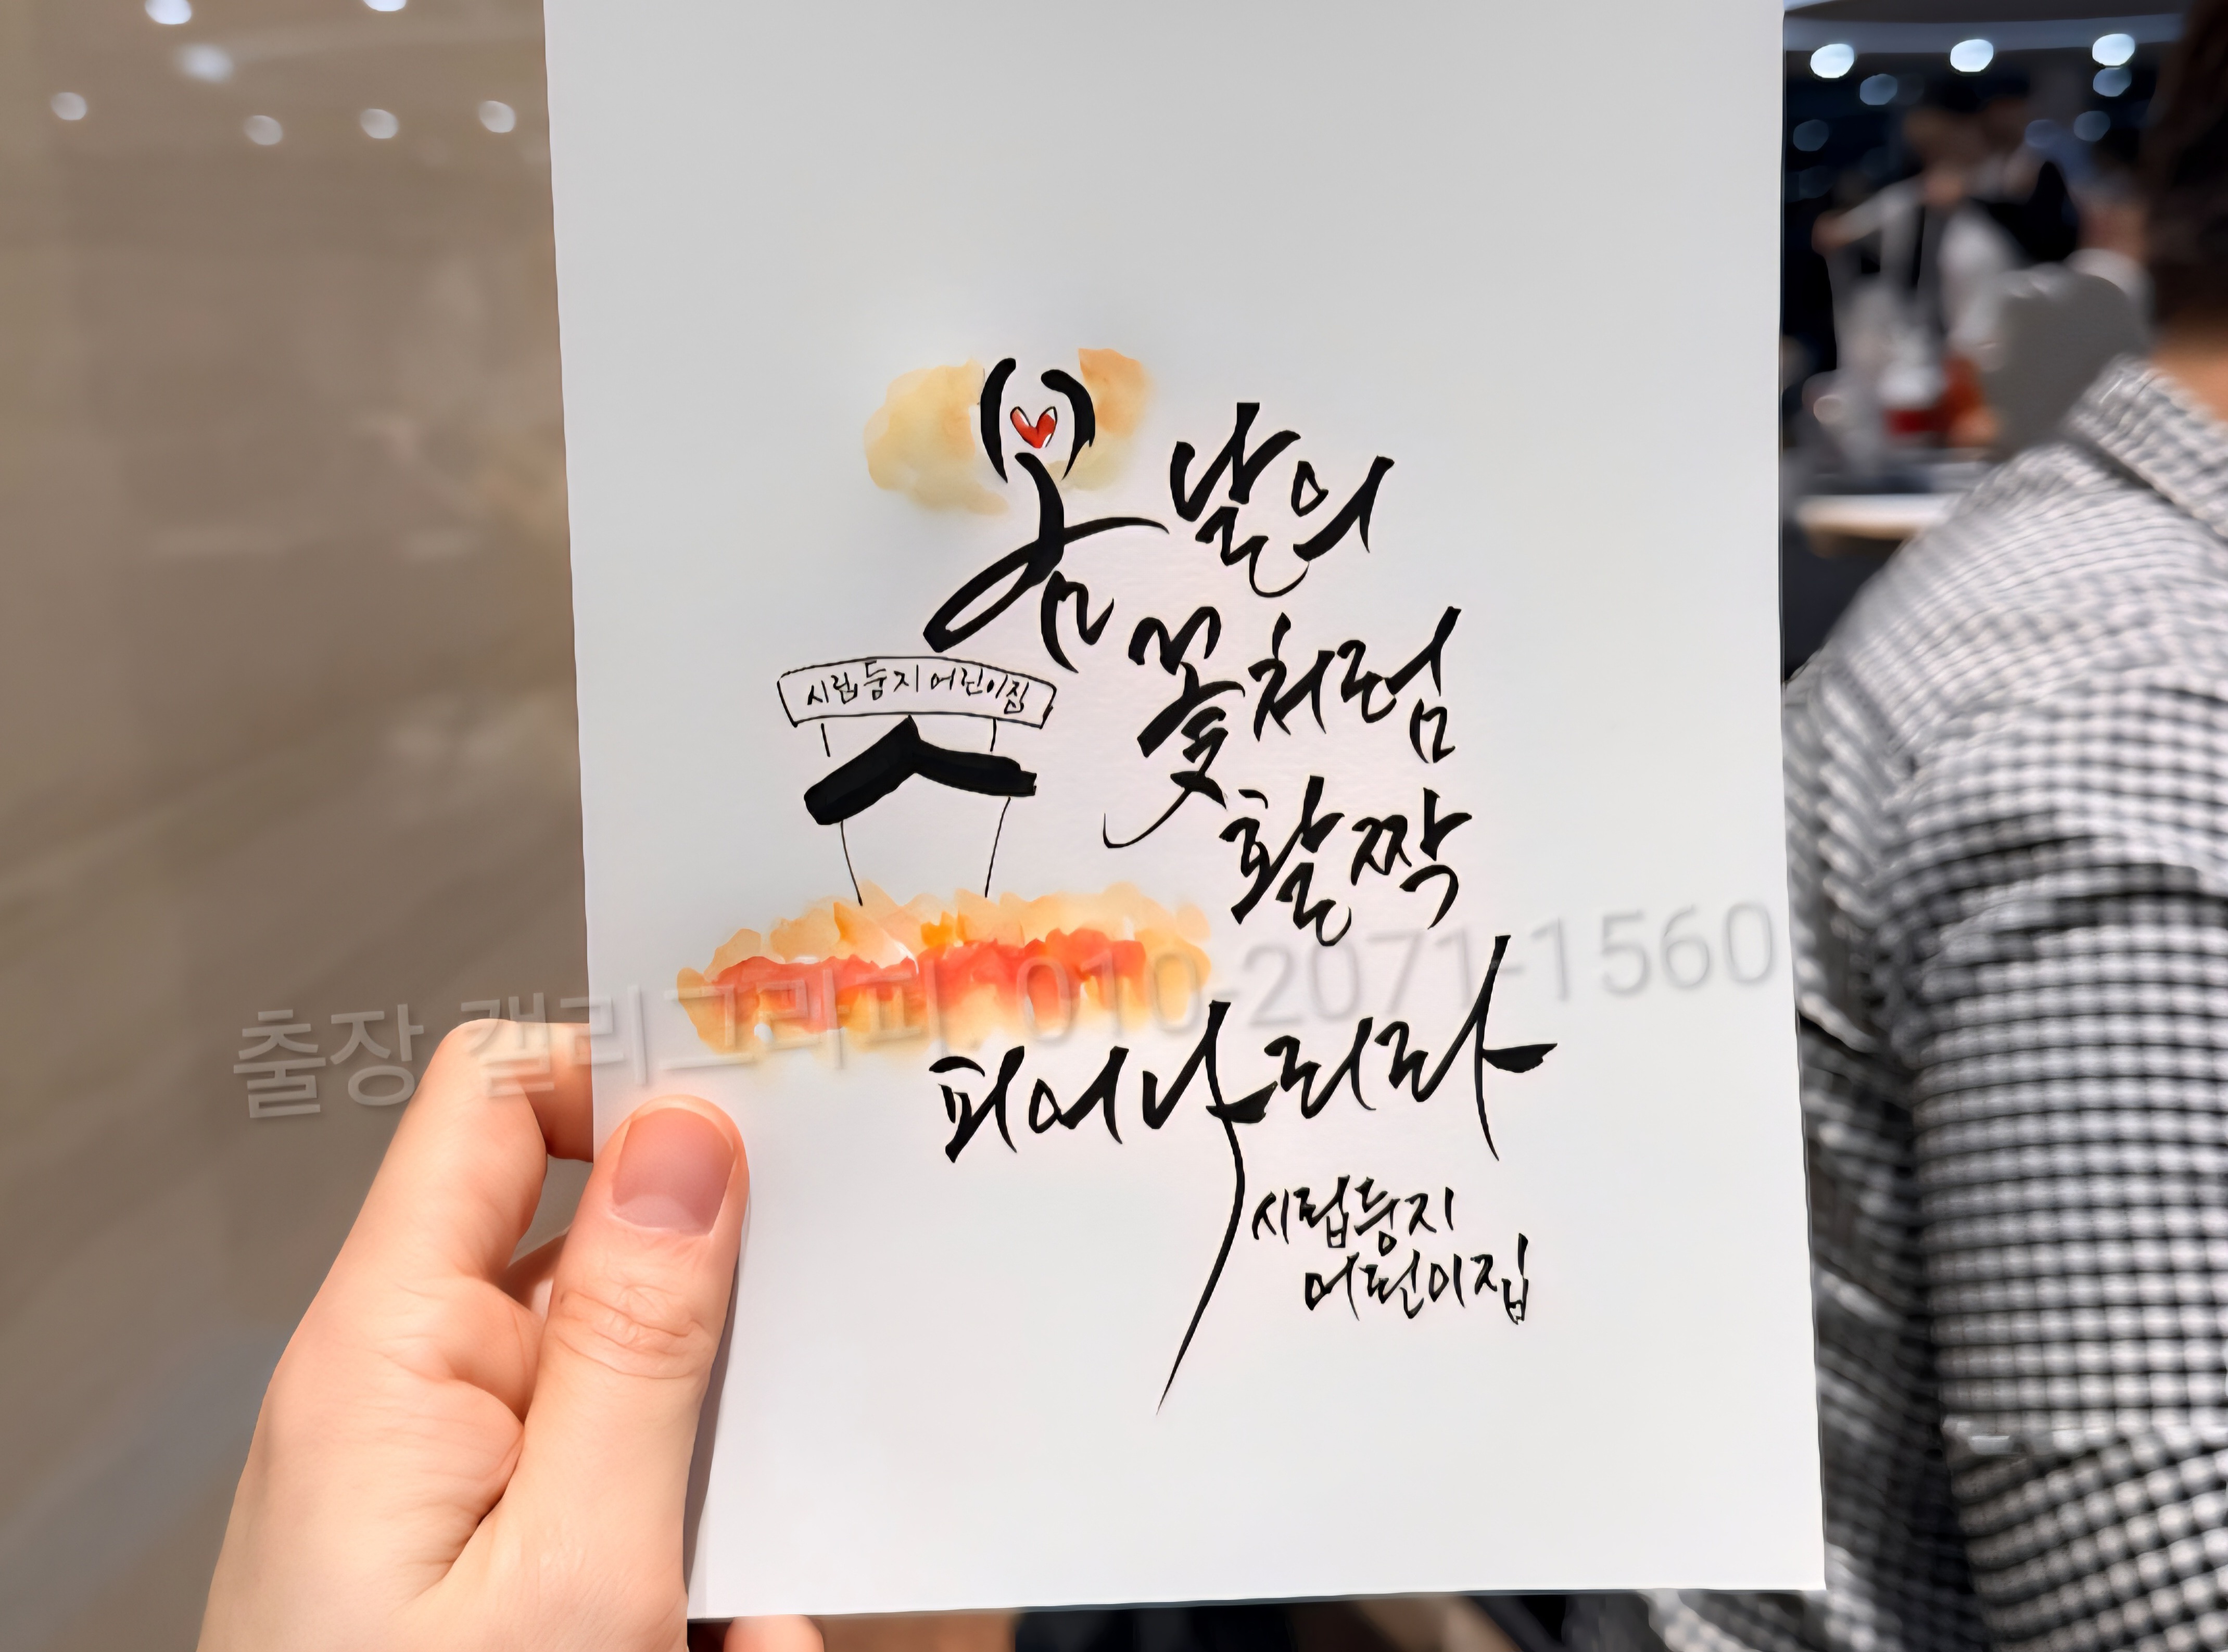 봄날의
꽃처럼
활짝
피어나리라
시립둥지어린이집
시립둥지
어린이집
출장 캘리그라피. 010-2071-1560